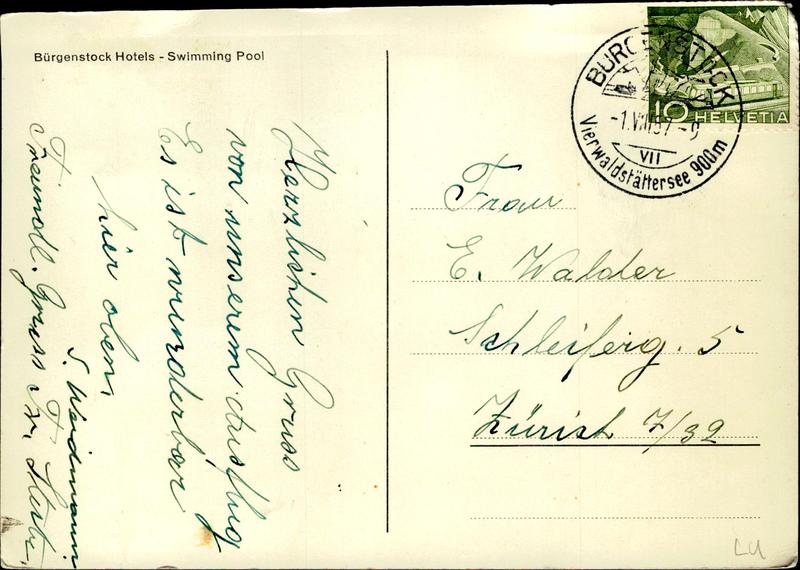 Bürgenstock Hotels - Swimming Pool
Herzlichen Gruss
von unserem Ausflug
Es ist wunderbar
hier oben,
S. Weidmann
Freundl. Gruss
BÜRGENSTOCK
-1.VII.57-9
VII
Vierwaldstättersee 900m
10 HELVETIA
Frau
E. Walder
Schleiferg. 5
Zürich 7/32
LU